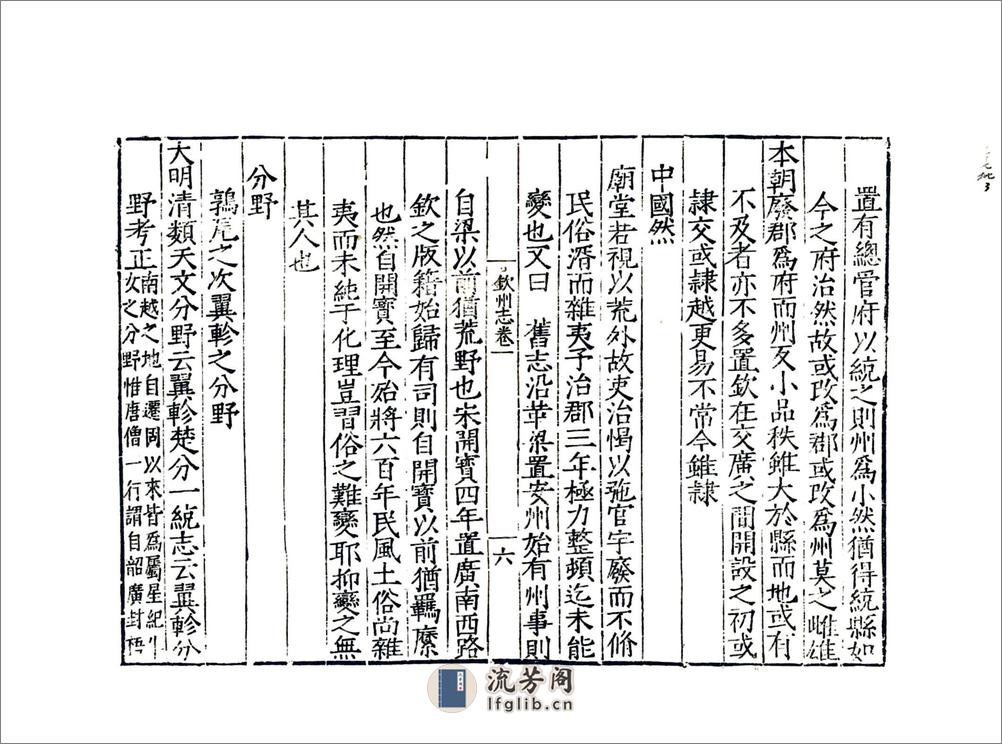 置有總管府以統之則州爲小然猶得統縣如
今之府治然故或改爲郡或改爲州莫之雌雄
本朝廢郡爲府而州反小品秩雖大於縣而地或有
不及者亦不多置欽在交廣之間開設之初或
隷交或隷越更易不常今雖隷
中國然
廟堂若視以荒外故吏治惕以弛官宇廢而不脩
民俗淆而雜夷予治郡三年極力整頓迄未能
變也又曰 舊志沿革梁置安州始有州事則
欽州志卷一
六
自梁以前猶荒野也宋開寶四年置廣南西路
欽之版籍始歸有司則自開寶以前猶羈縻
也然自開寶至今始將六百年民風土俗尚雜
夷而未純于化理豈習俗之難變耶抑變之無
其人也
分野
鶉尾之次翼軫之分野
大明清類天文分野云翼軫楚分一統志云翼軫分
野考正南越之地自遷固以來皆爲屬星紀牛
女之分野惟唐僧一行謂自韶廣封梧
流芳阁
lfglib.cn